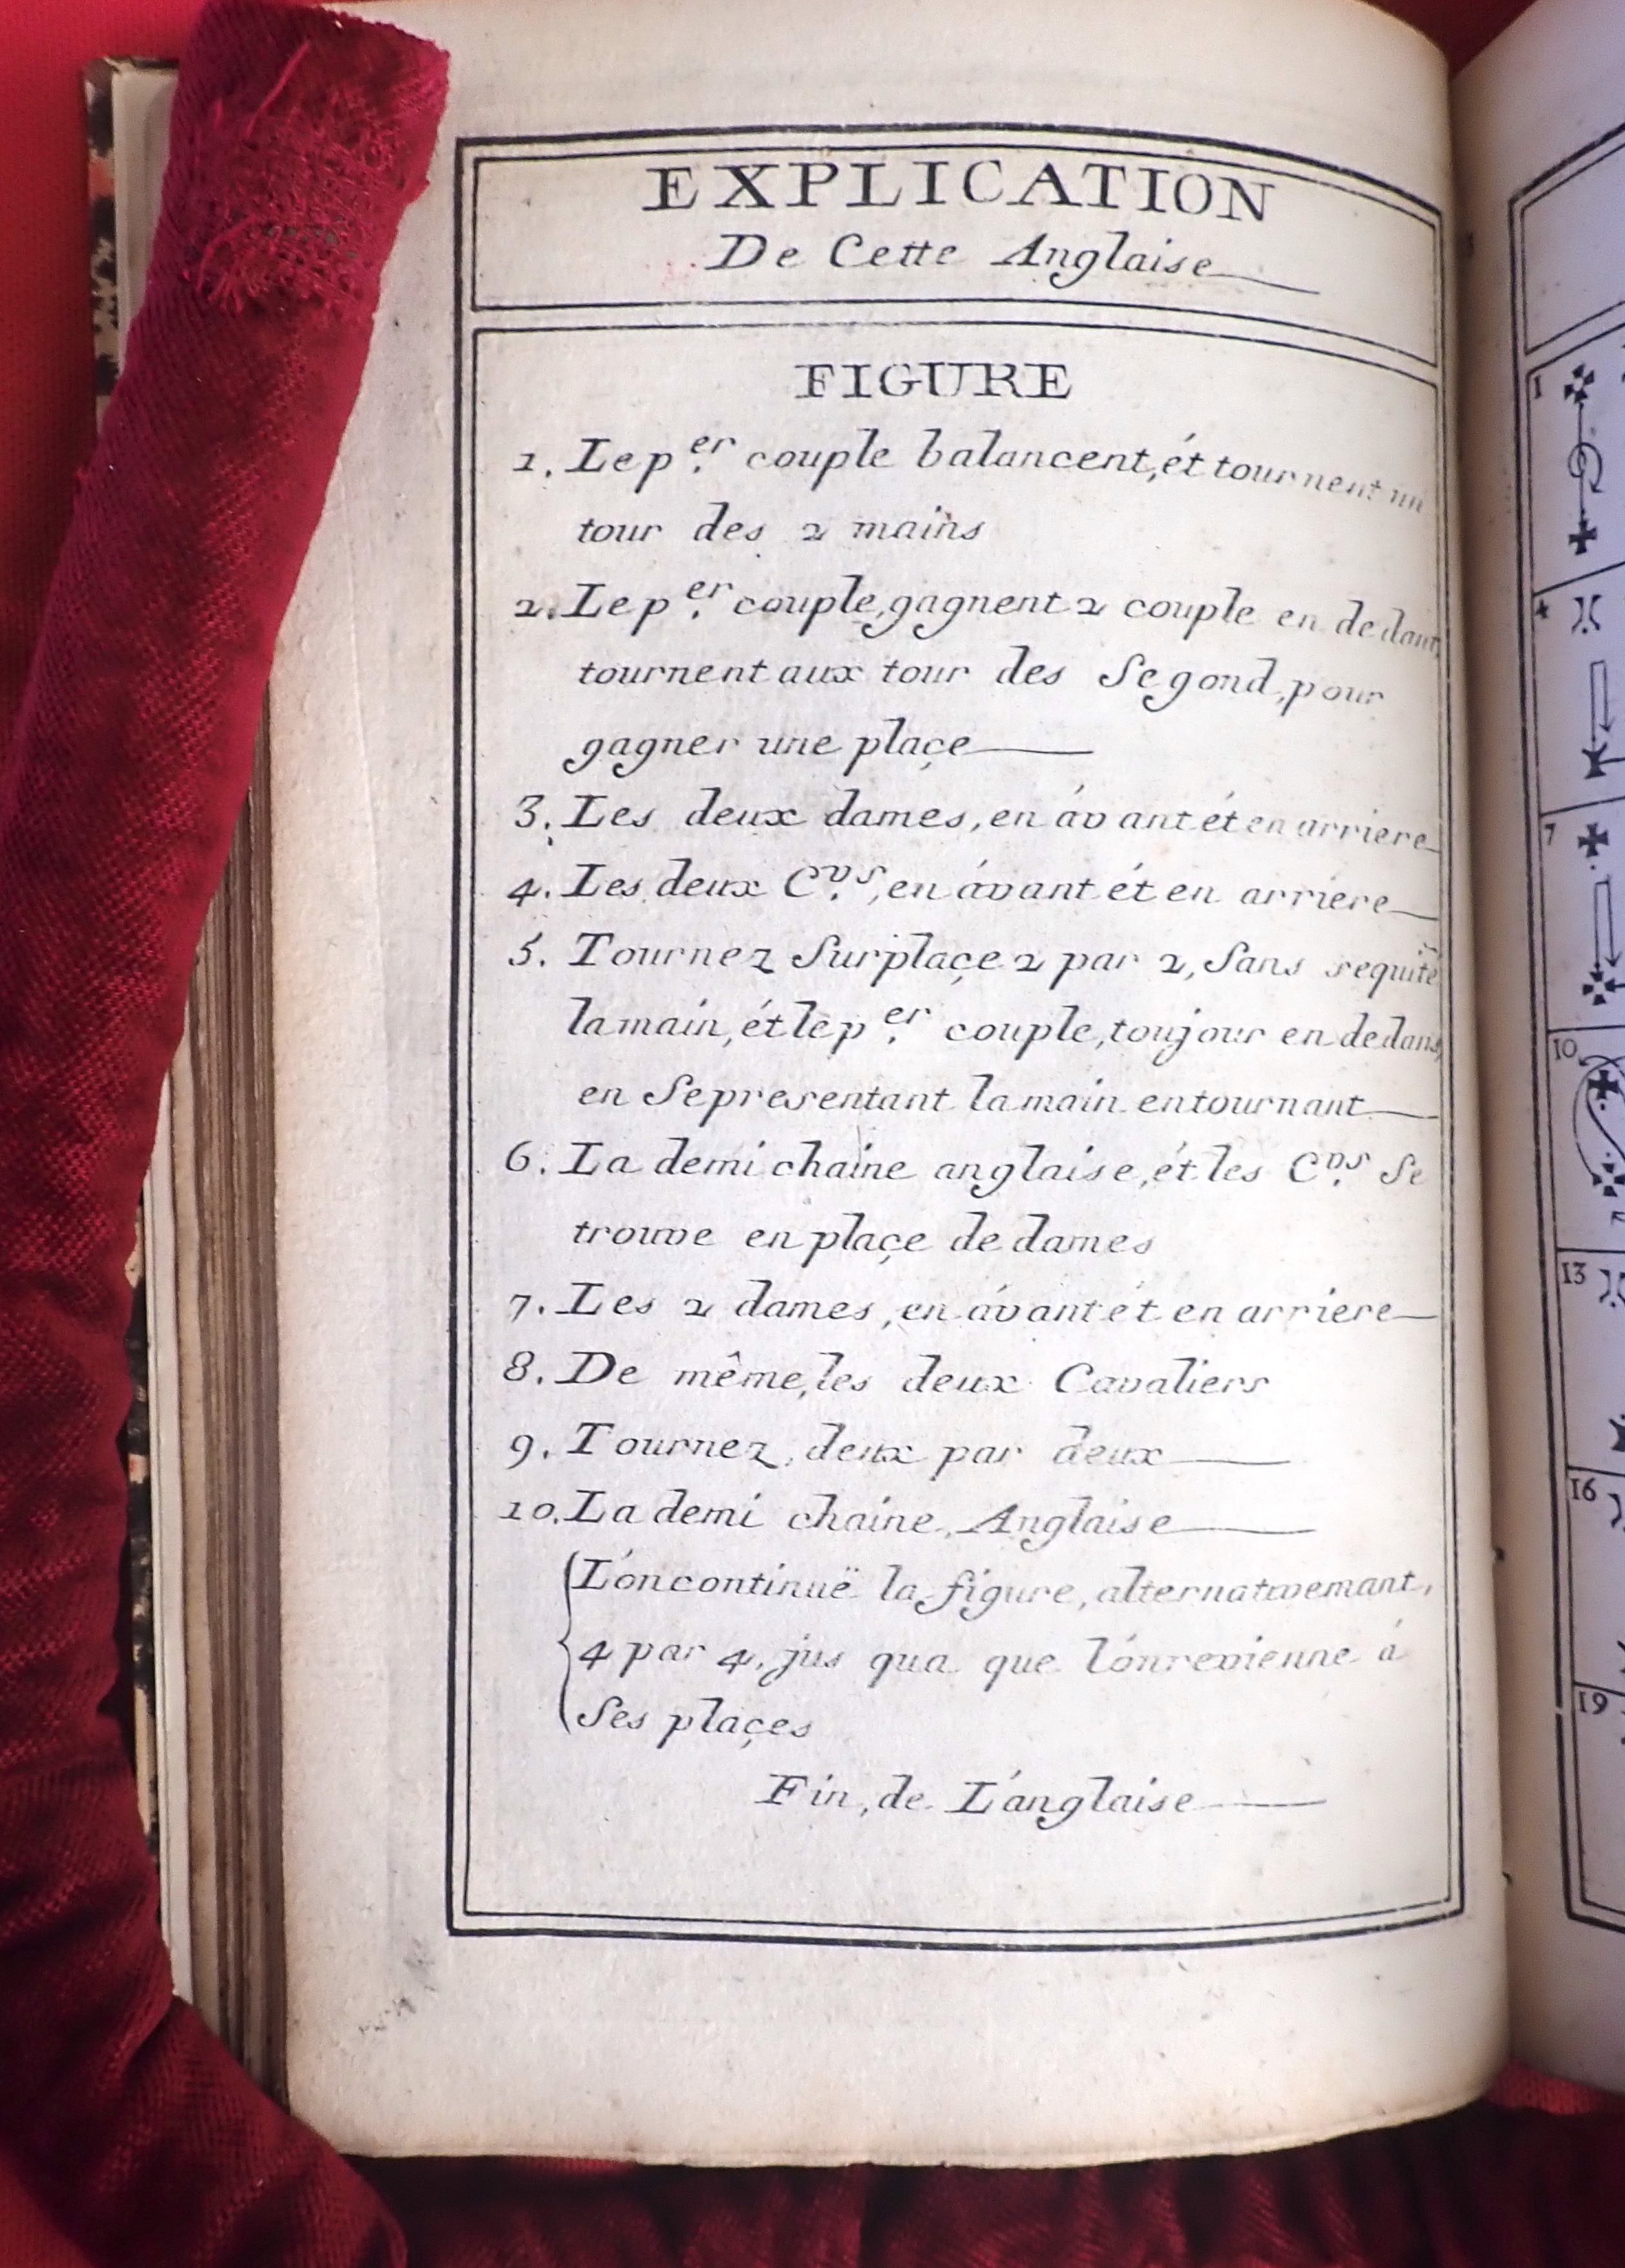 EXPLICATION
De Cette Anglaise
FIGURE
1. Le p.er couple balancent, ét tournent un
tour des 2 mains
2. Le p.er couple, gagnent 2 couple en dedant,
tournent aux tour des Segond, pour
gagner une plaçe
3. Les deux dames, en ávant ét en arriere
4. Les deux C.vs, en ávant ét en arriere
5. Tournez Sur plaçe 2 par 2, Sans sequité
la main, ét le p.er couple, toujour en dedans,
en Se presentant la main en tournant
6. La demi chaine anglaise, ét les C.vs Se
trouve en plaçe de dames
7. Les 2 dames, en ávant ét en arriere
8. De même, les deux Cavaliers
9. Tournez, deux par deux
10. La demi chaine, Anglaise
L'on continuë la figure, alternativemant,
4 par 4, jus qua que l'on revienne á
Ses plaçes
Fin, de L'anglaise
1
4
7
10
13
16
19